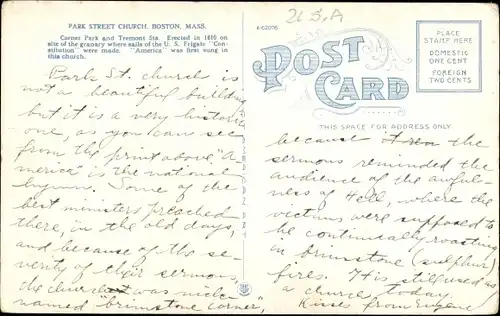 PARK STREET CHURCH, BOSTON, MASS.
Corner Park and Tremont Sts. Erected in 1810 on
site of the granary where sails of the U. S. Frigate "Con-
stitution" were made. "America" was first sung in
this church.
Park St. church is
not a beautiful building
but it is a very historic
one, as you can see
from the print above. "A-
merica" is the national
hymn. Some of the
best ministers preached
there, in the old days,
and because of the se-
verity of their sermons,
the church was nick-
named "brimstone corner,"
U.S.A
A-62076
POST CARD
THIS SPACE FOR ADDRESS ONLY
PLACE
STAMP HERE
DOMESTIC
ONE CENT
FOREIGN
TWO CENTS
because the
sermons reminded the
audience of the awful-
ness of Hell, where the
victims were supposed to
be continually roasting
in brimstone (sulphur)
fires. It is still used as
a church today.
Kisses from Eugene